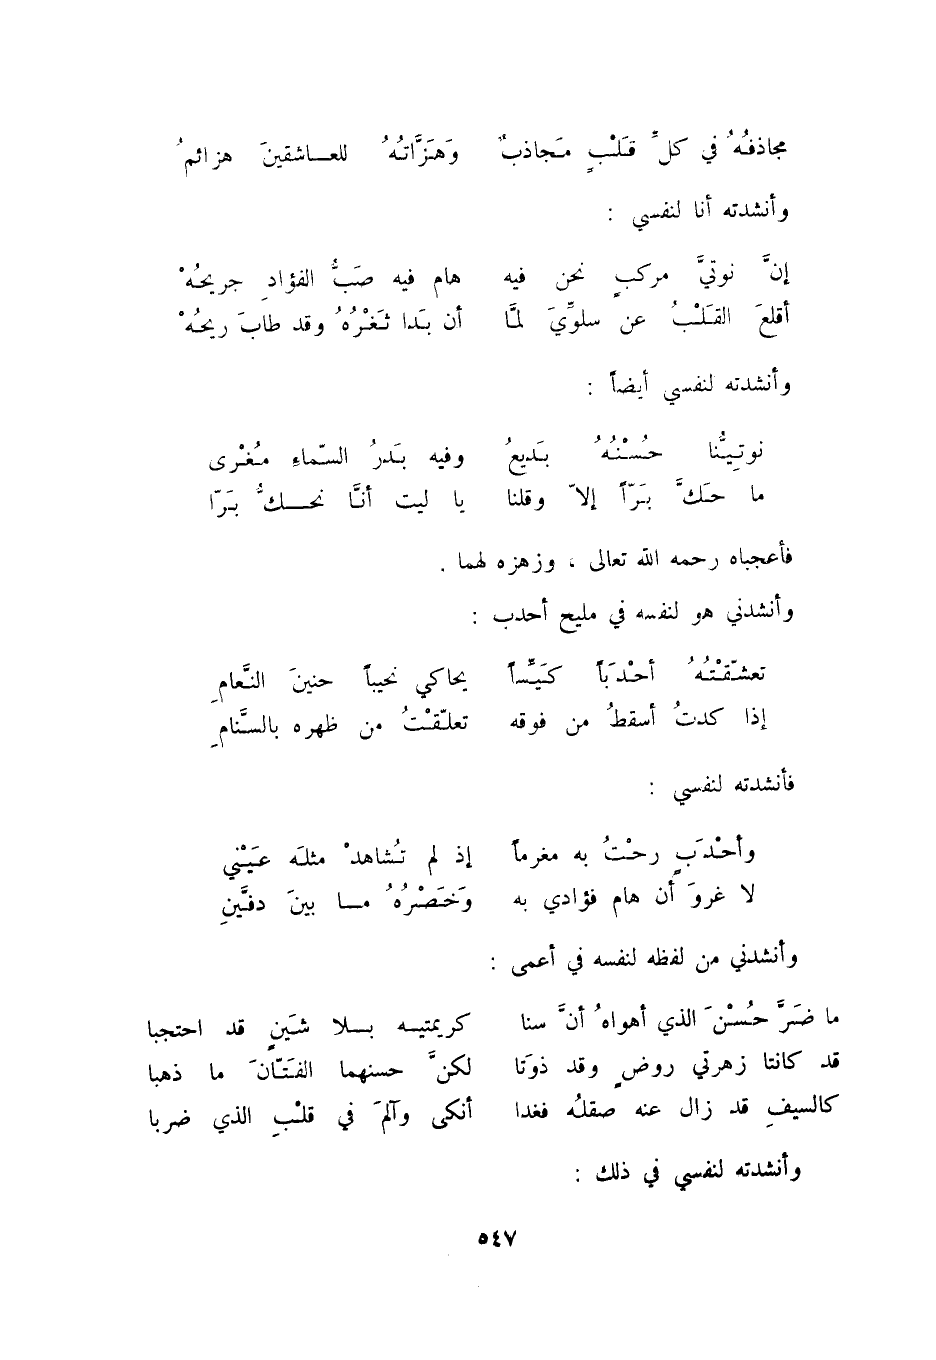 مجاذفُهُ في كلِّ قَلْبٍ مَجاذبٌ وَهَزَّاتُهُ للعــاشقينَ هزائمُ
وأنشدته أنا لنفسي :
إنَّ نوتيَّ مركبٍ نحن فيه هام فيه صَبُّ الفؤادِ جريحُهْ
أقلعَ القَلْبُ عن سلوِّيَ لمَّا أن بَدا ثَغْرُهُ وقد طابَ ريحُهْ
وأنشدته لنفسي أيضاً :
نوتِيُّنا حُسْنُهُ بَديعُ وفيه بَدرُ السّماءِ مُغْرى
ما حَكَّ بَرّاً إلاّ وقلنا يا ليت أنَّا نحـــكُّ بَرّا
فأعجباه رحمه الله تعالى ، وزهزه لهما .
وأنشدني هو لنفسه في مليح أحدب :
تعشّقتُهُ أحْدَباً كَيِّساً يحاكي نحيباً حنينَ النَّعامِ
إذا كدتُ أسقطُ من فوقه تعلّقتُ من ظهره بالسَّنامِ
فأنشدته لنفسي :
وأحْدَبٍ رحْتُ به مغرماً إذ لم تُشاهدْ مثلَه عَيْني
لا غروَ أن هام فؤادي به وَخَصْرُهُ مــا بينَ دفَّينِ
وأنشدني من لفظه لنفسه في أعمى :
ما ضَرَّ حُسْنَ الذي أهواهُ أنَّ سنا كريمتيــه بــلا شَينٍ قد احتجبا
قد كانتا زهرتي روضٍ وقد ذوَتا لكنَّ حسنهما الفَتّانَ ما ذهبا
كالسيفِ قد زال عنه صقلُه فغدا أنكى وآلمَ في قلْبِ الذي ضربا
وأنشدته لنفسي في ذلك :
٥٤٧